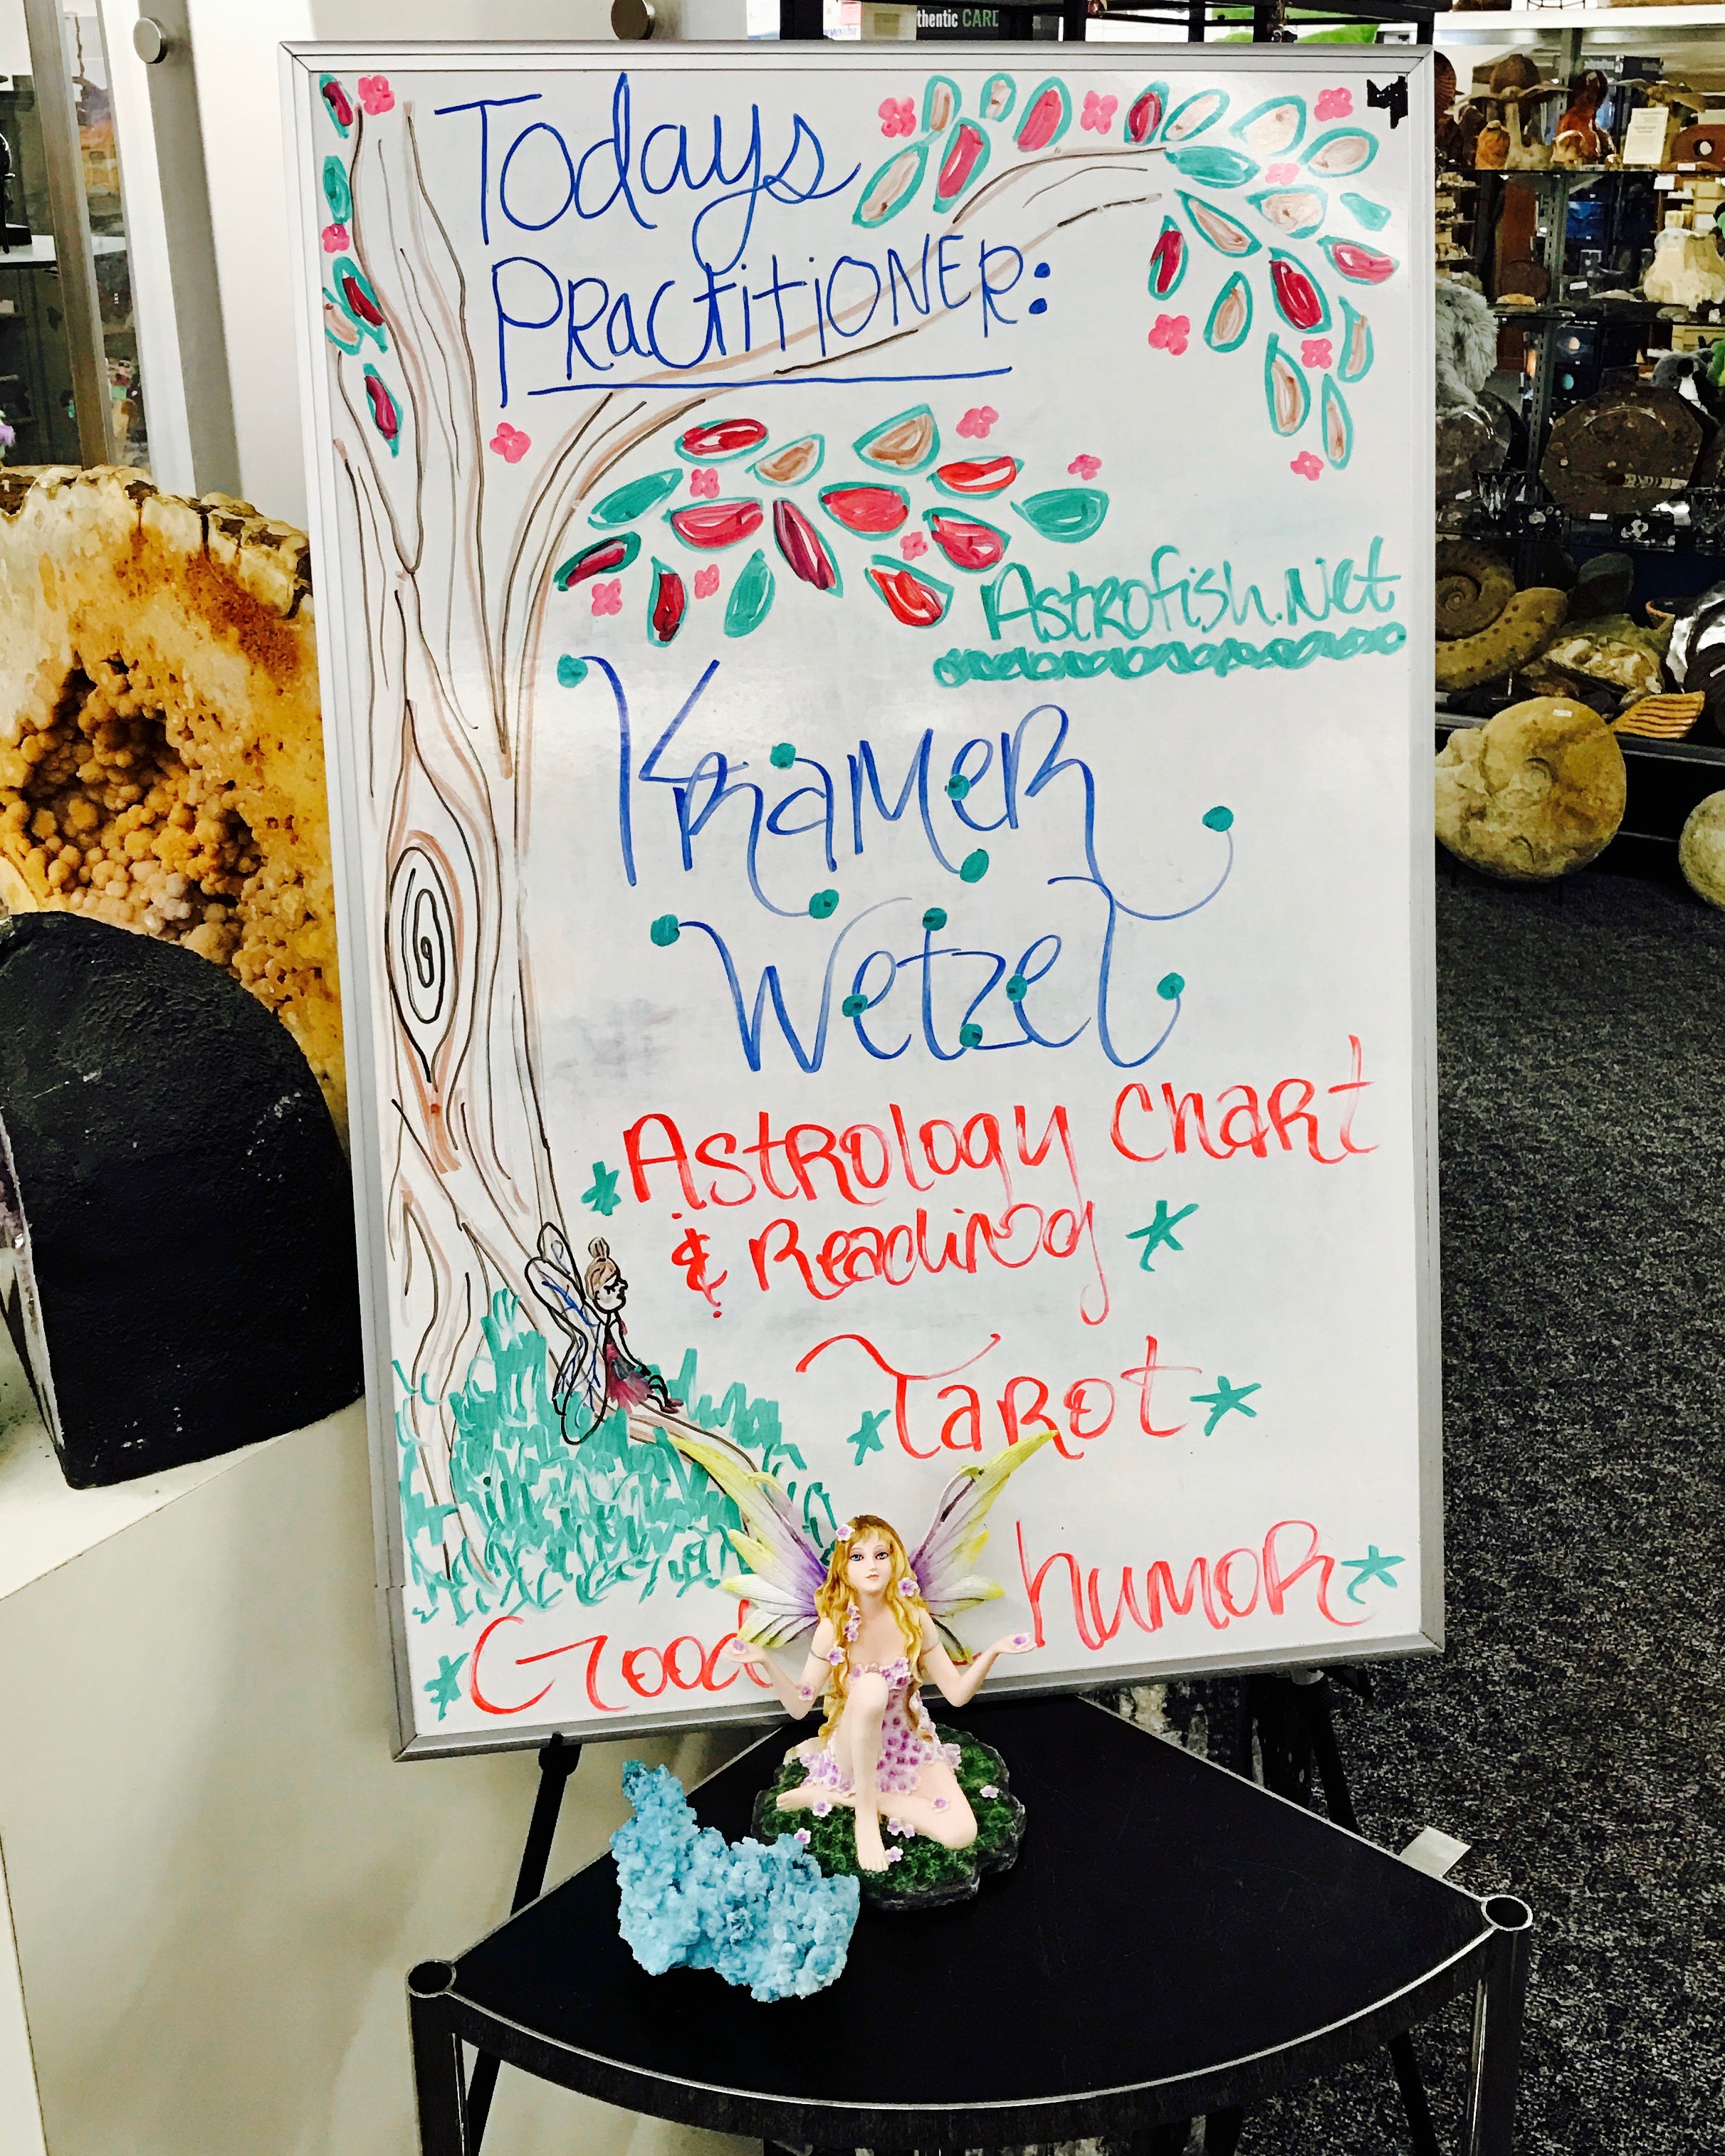 thentic CARD
Todays
PRactitiONER:
Astrofish.Net
KRaMeR
Wetzel
Astrology Chart
& Reading
Tarot
Good humor